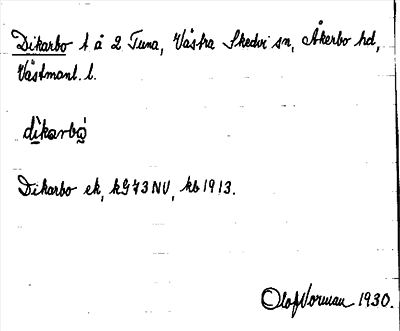 Dikarbo t å 2 Tuna, Västra Skedvi sn, Åkerbo hd,
Västmanl. l.
dìkarbó
Dikarbo ek, kG73NV, kb 1913.
Olof Vorman 1930.